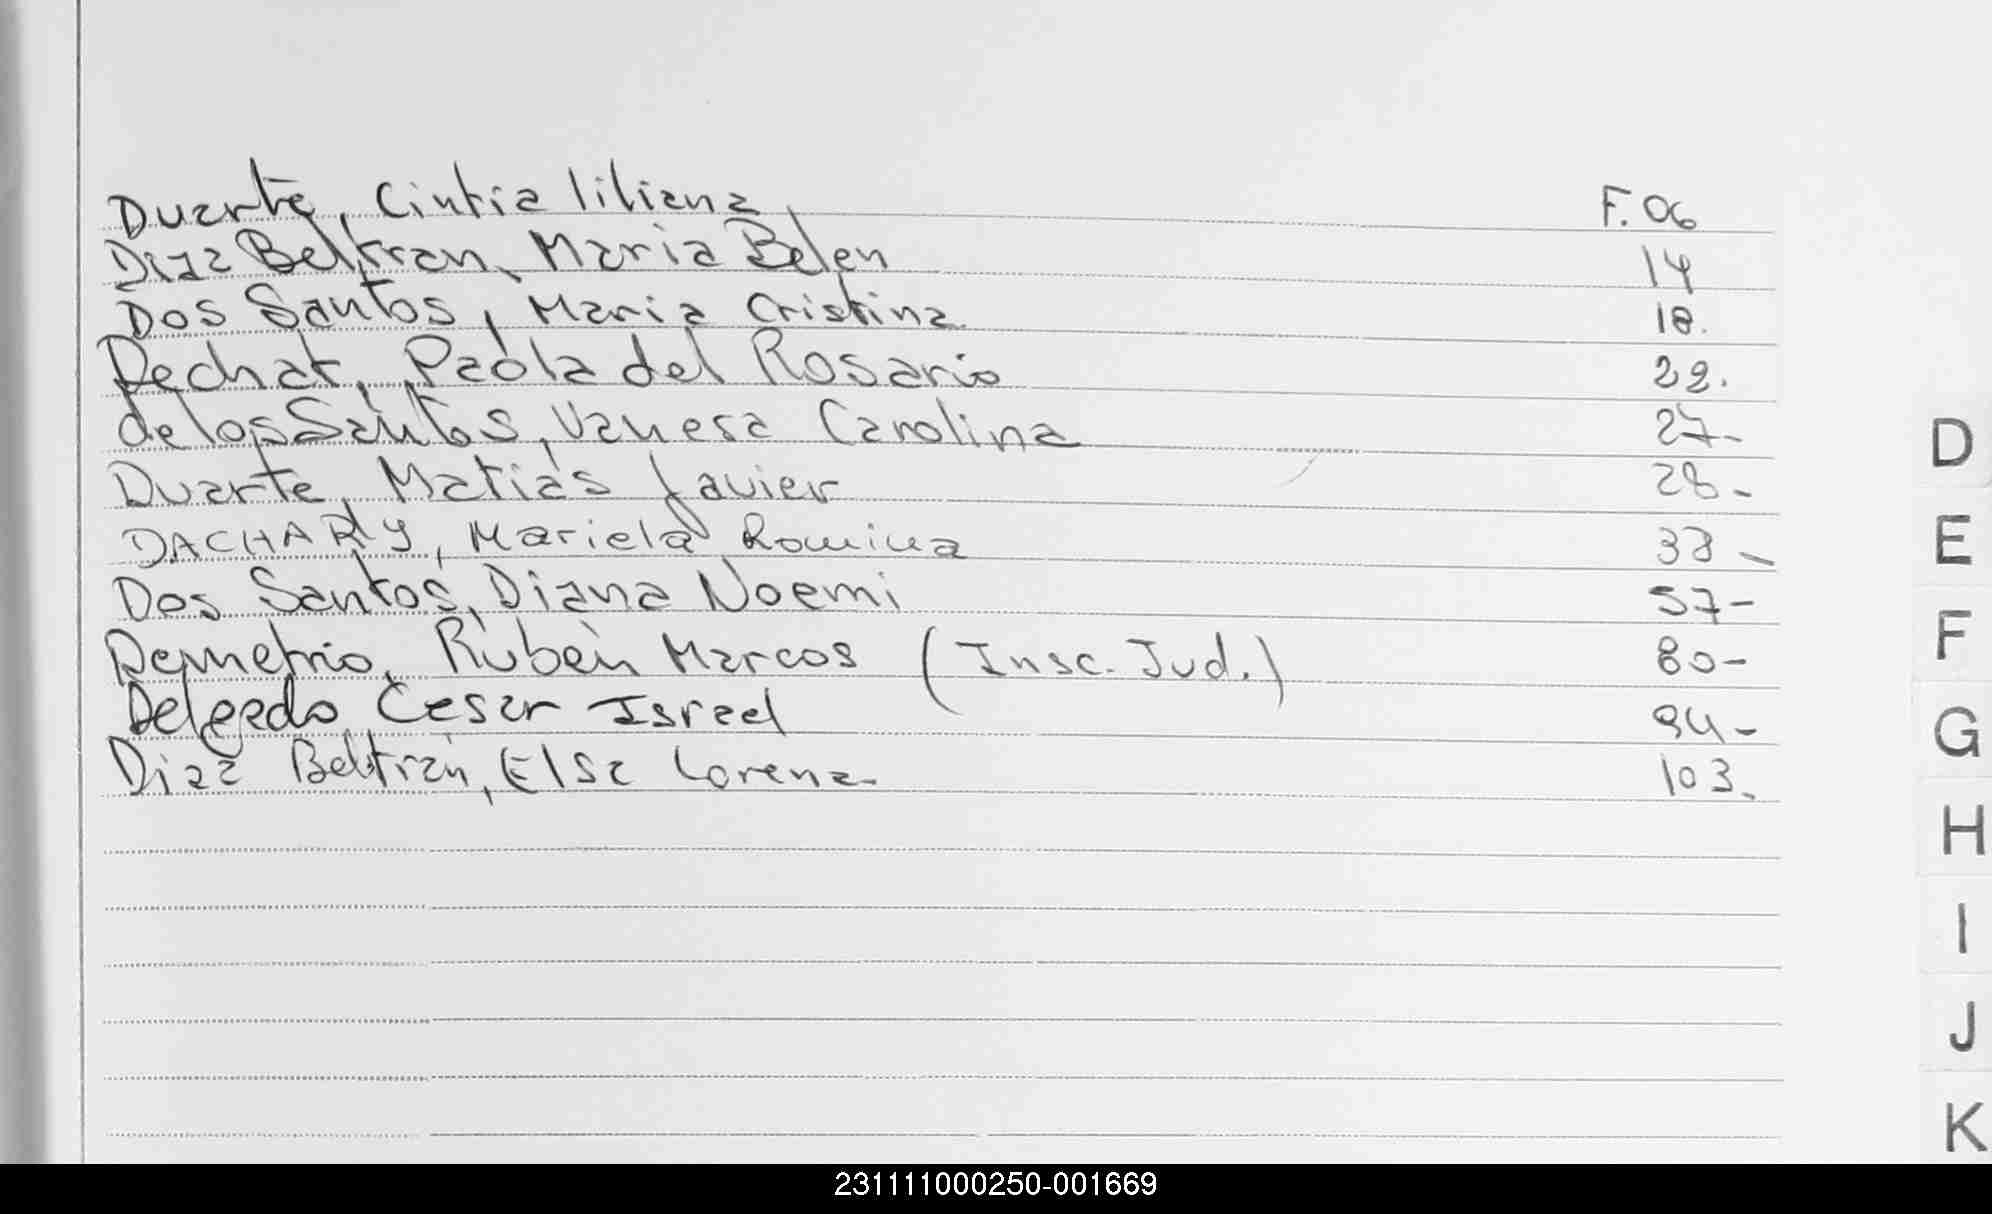 Duarte, Cintia liliana F. 06
Diaz Beltran, Maria Belen 14
Dos Santos, Maria Cristina 18.
Dechat, Paola del Rosario 22.
de los Santos, Vanesa Carolina 27-
Duarte, Matias Javier 28-
DACHARLY, Mariela Romina 33-
Dos Santos, Diana Noemi 57-
Demetrio, Rubén Marcos (Insc. Jud.) 80-
Delgado Cesar Israel 94-
Diaz Beltran, Elsa Lorena 103.
D
E
F
G
H
I
J
K
231111000250-001669